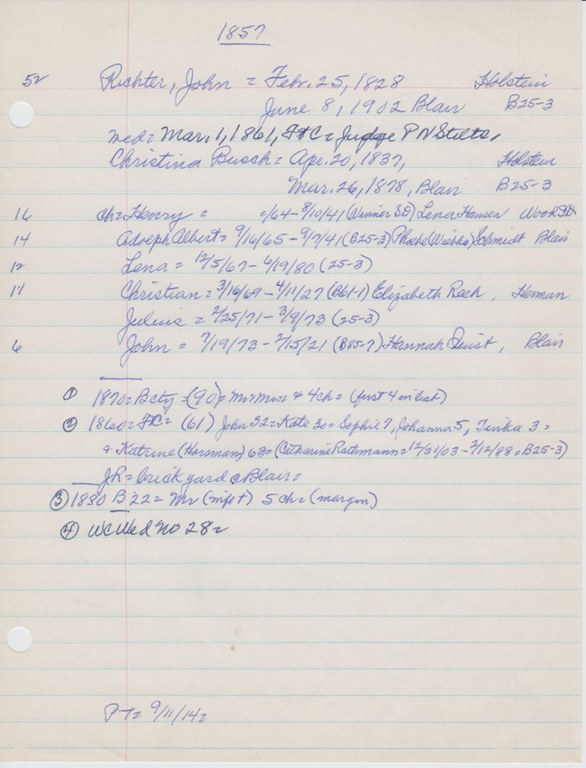 1857
52 Richter, John = Febr. 25, 1828 Holstein
June 8, 1902 Blair B25-3
med = Mar. 1, 1861, Ft C = Judge P N Stilts,
Christina Busch = Apr. 20, 1837, Holstein
Mar. 26, 1878, Blair B25-3
16 ch = Henry = 0/64 - 8/10/41 (Winner SD) Lena Hansen Wood SD
14 Adolph Albert = 9/16/65 - 9/7/41 (B25-3) Phoebe (Wiebke) Schmidt Blair
12 Lena = 12/5/67 - 6/19/80 (25-3)
11 Christian = 3/16/69 - 4/11/27 (B61-1) Elizabeth Rech, Herman
Julius = 2/25/71 - 3/9/73 (25-3)
6 John = 7/19/73 - 2/15/21 (B05-7) Hannah Quist, Blair
① 1870 = Bcty (90) = Mr Mrs & 4 ch = (first 4 on list)
② 1860 = Ft C = (61) John 32 = Kate 30 = Sophie 7, Johanna 5, Tinka 3 =
& Katrine (Horsman) 63 = (Catharine Rathmann = 12/31/03 - 2/12/88 = B25-3)
JR = brickyard @ Blair =
③ 1880 B 22 = Mr (mfst) 5 ch = (margin)
④ WC Wed no 28 =
PT = 9/11/14 =